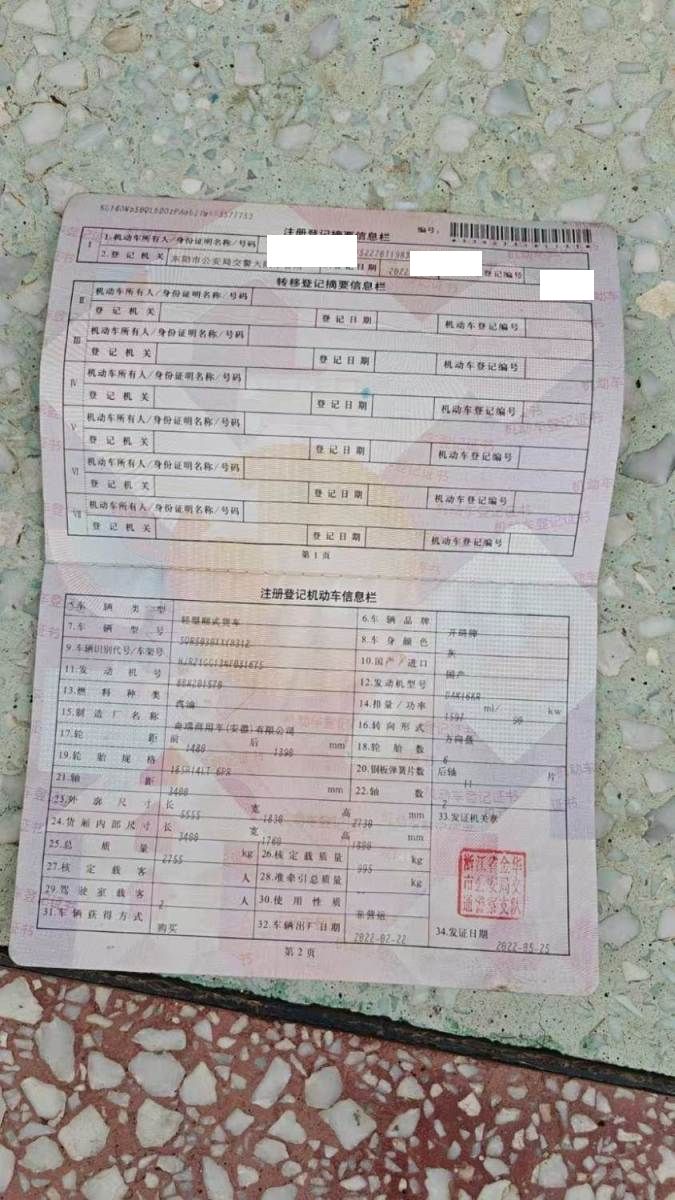 注册登记摘要信息栏
编号:
I 1.机动车所有人/身份证明名称/号码
2.登记机关 东阳市公安局交警大 登记日期 2022 登记编号
转移登记摘要信息栏
II 机动车所有人/身份证明名称/号码
登记机关 登记日期 机动车登记编号
III 机动车所有人/身份证明名称/号码
登记机关 登记日期 机动车登记编号
IV 机动车所有人/身份证明名称/号码
登记机关 登记日期 机动车登记编号
V 机动车所有人/身份证明名称/号码
登记机关 登记日期 机动车登记编号
VI 机动车所有人/身份证明名称/号码
登记机关 登记日期 机动车登记编号
VII 机动车所有人/身份证明名称/号码
登记机关 登记日期 机动车登记编号
第1页
注册登记机动车信息栏
5.车辆类型 轻型厢式货车 6.车辆品牌 开瑞牌
7.车辆型号 8.车身颜色 灰
9.车辆识别代号/车架号 10.国产/进口 国产
11.发动机号 12.发动机型号
13.燃料种类 汽油 14.排量/功率 1597 ml/ 90 kw
15.制造厂名称 奇瑞商用车(安徽)有限公司 16.转向形式 方向盘
17.轮距 前 1480 后 1390 mm 18.轮胎数 6
19.轮胎规格 185R14LT 6PR 20.钢板弹簧片数 后轴 片
21.轴距 3400 mm 22.轴数 2
23.外廓尺寸 长 宽 1830 高 2730 mm 33.发证机关章
24.货厢内部尺寸 长 3400 宽 高 mm
25.总质量 2755 kg 26.核定载质量 995 kg
27.核定载客 人 28.准牵引总质量 kg
29.驾驶室载客 2 人 30.使用性质 非营运
31.车辆获得方式 购买 32.车辆出厂日期 2022-02-22 34.发证日期 2022-05-25
浙江省金华市公安局交通警察支队
第2页